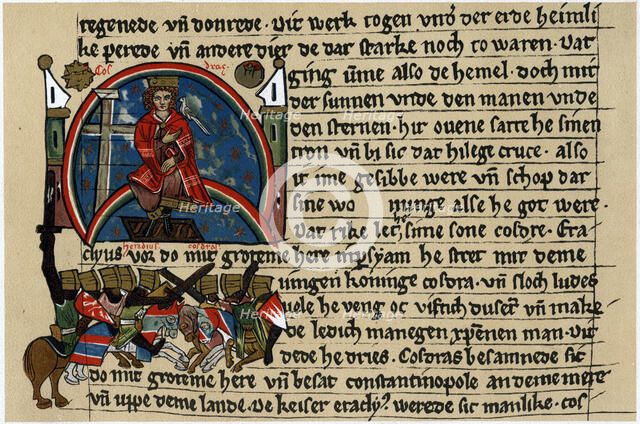 regenede vn̄ donrede. Vit werk togen vnd' der erde heimli
ke perede vn̄ andere dier de dar starke noch to waren. Dat
Cos drac
ging v̄me also de hemel. doch mit
der sunnen unde den manen unde
den sternen. hir ovene satte he sinen
tron vn̄ bi sic dat hilege cruce. also
it ime gesibbe were vn̄ schop dar
sine wo nunge alse he got were.
Dat rike let he sime sone cosdre. Era
heraclius cosdras
chius vor do mit groteme here
he stret mit deme
iungen koninge cosdra. vn̄ sloch
vele he veng oc viftich dusent vn̄ make
de ledich manegen xp̄enen man. vit
dede he dries. Cosdras besamnede sic
do mit groteme here vn̄ besat constantinopole an deme mere
vn̄ uppe deme lande. De keiser eracly9 werede sic manlike. cos
Heritage
Heritage
Heritage
Heritage
Heritage
Heritage